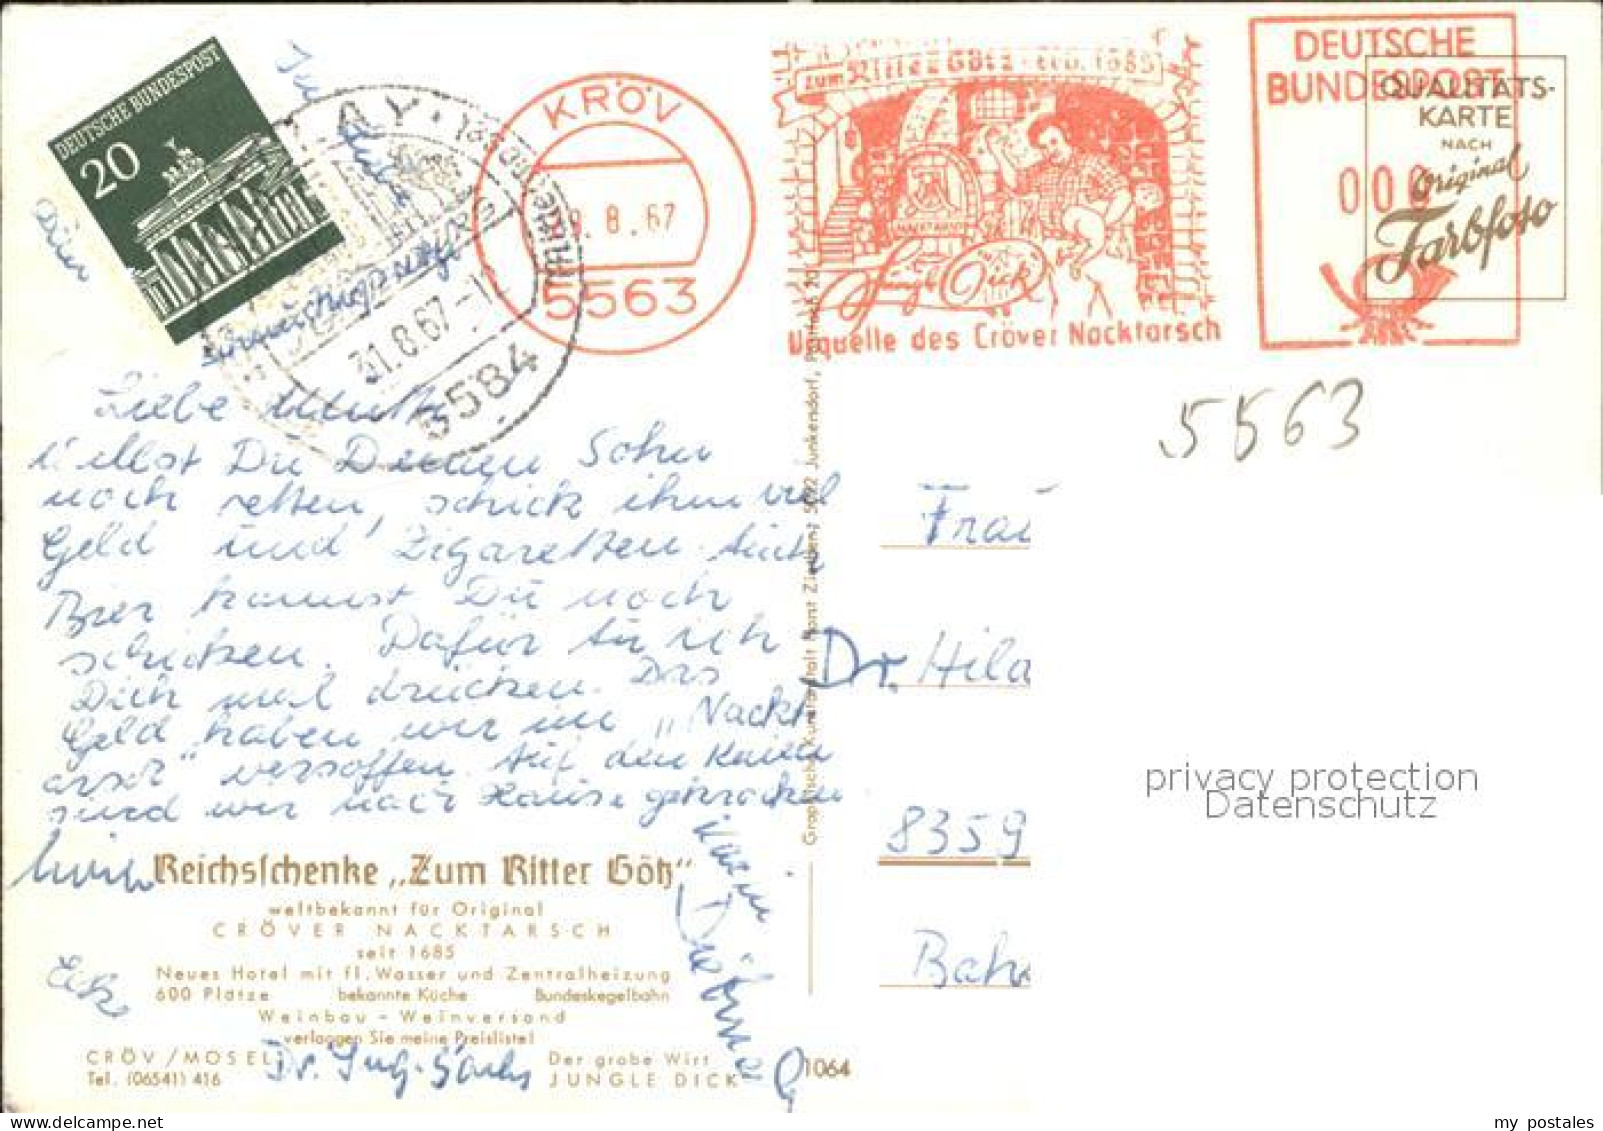 DEUTSCHE BUNDESPOST
20
KRÖV
8.67
5563
31.8.67
5584
Zum Ritter Götz
Jungle Dick
Urquelle des Cröver Nacktarsch
DEUTSCHE
BUNDESPOST
000
QUALITÄTS-
KARTE
NACH
Original
Farbfoto
5563
Liebe
willst Du Deinen Sohn
noch retten, schick ihm viel
Geld und Zigaretten. Auch
Bier kannst Du noch
schicken. Dafür tu ich
Dich mal drücken. Das
Geld haben wir im „Nackt
arsch" versoffen. Auf den Knien
sind wir nach Hause gekrochen
Frau
Dr. Hila
8359
Bah
privacy protection
Datenschutz
Reichsschenke „Zum Ritter Götz"
weltbekannt für Original
CRÖVER NACKTARSCH
seit 1685
Neues Hotel mit fl. Wasser und Zentralheizung
600 Plätze bekannte Küche Bundeskegelbahn
Weinbau - Weinversand
verlangen Sie meine Preisliste!
CRÖV/MOSEL
Tel. (06541) 416
Der grobe Wirt
JUNGLE DICK
1064
Karin
my postales